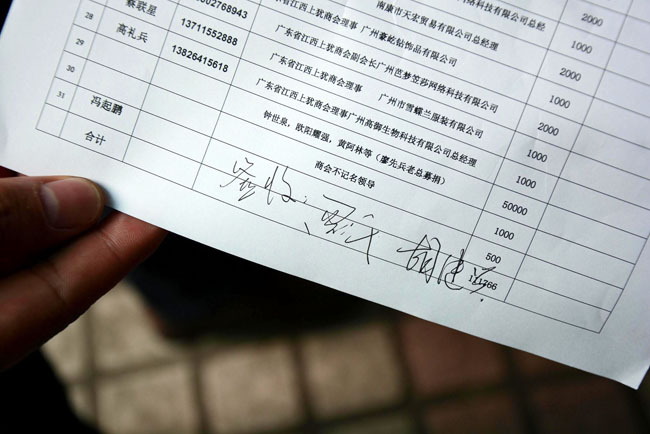 网络科技有限公司总经
2000
02768943
南康市天宏贸易有限公司总经理
1000
28
联星
13711552888
广东省江西上犹商会理事 广州豪屹钻饰品有限公司
2000
29
高礼兵
13826415618
广东省江西上犹商会副会长广州芭梦笠莎网络科技有限公司
1000
30
广东省江西上犹商会理事 广州市雪蝶兰服装有限公司
2000
31
冯起鹏
广东省江西上犹商会理事广州高御生物科技有限公司总经理
1000
钟世泉，欧阳耀强，黄阿林等（廖先兵老总募捐）
1000
50000
商会不记名领导
1000
500
合计
签收：